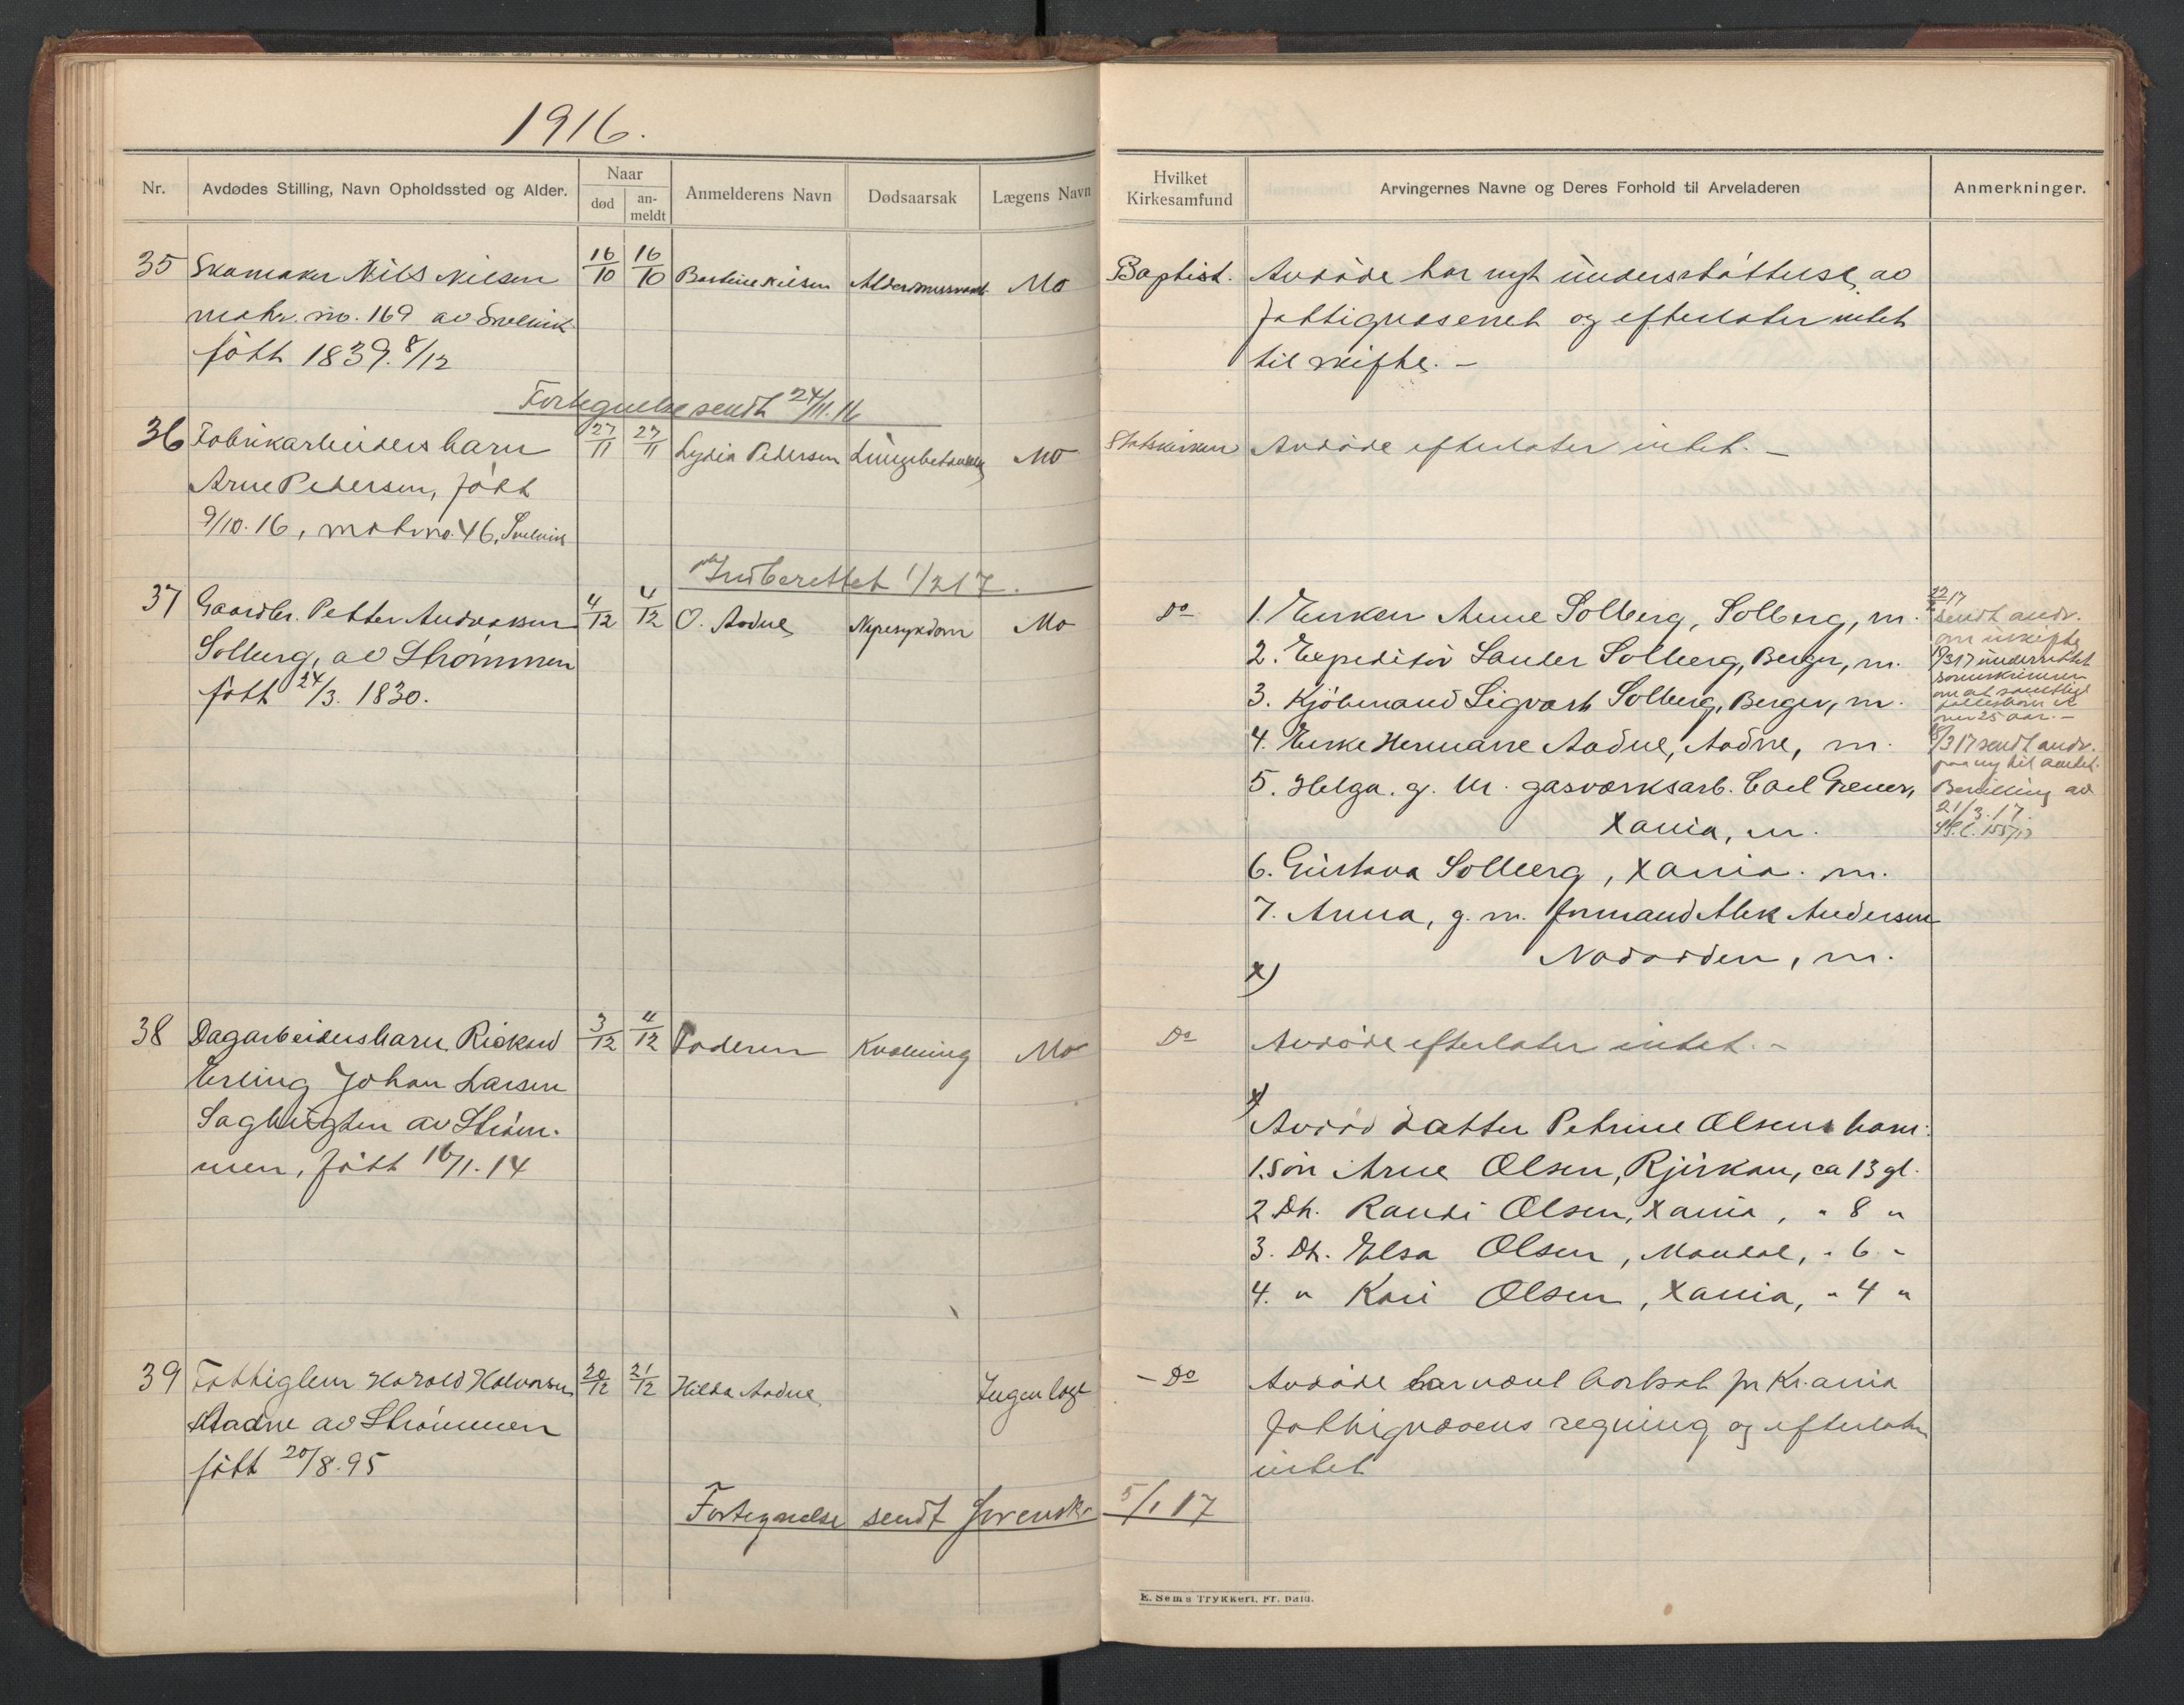 1916.
Nr.
Avdødes Stilling, Navn Opholdssted og Alder.
Naar
død
an-
meldt
Anmelderens Navn
Dødsaarsak
Lægens Navn
Hvilket
Kirkesamfund
Arvingernes Navne og Deres Forhold til Arveladeren
Anmerkninger.
35 Skomaker Nils Nilsen 16/10 16/10 Nilsen Mo Baptist. Avdøde har nyt understøttelse av
matr. no. 169 av Svelvik fattigvesenet og efterlater intet
født 1839. 8/12 til skifte. –
Fortegnelse sendt 24/11.16
36 Fabrikarbeiders barn 27/11 27/11 Lydia Pedersen Mo Statskirken Avdøde efterlater intet. –
Arne Pedersen, født
9/10.16, matr no. 46, Svelvik
Indberettet 1/2 17.
37 Gaardbr. Petter Andreassen 4/12 4/12 O. Aadne Nyresykdom Mo Do 1. Enken Anne Solberg, Solberg, m.
Solberg, av Strømmen 2. Expeditør Sander Solberg, Berger, m.
født 24/3. 1830. 3. Kjøbmand Sigvart Solberg, Berger, m.
4. Enke Hermane Aadne, Aadne, m.
5. Helga. g. m. gasværksarb. Carl
Xania, m.
6. Gustava Solberg, Xania. m.
7. Anna, g. m. formand Alek Andersen
m.
x)
22/2 17
sendt andr.
om uskifte
8/3 17 underrettet
sorenskriveren
om at samtlige
fællesbørn er
over 25 aar. –
8/3 17 sendt andr.
paa ny til amtet.
Bevilling av
21/3.17.
38 Dagarbeidersbarn Rickard 3/12 4/12 Faderen Kvælning Mo Do Avdøde efterlater intet. –
Erling Johan Larsen
Saghugten av Strøm-
men, født 16/1.14
x)
Avdød datter Petrine Olsens barn:
1. Søn Arne Olsen, Rjukan, ca 13 gl.
2 Dt. Randi Olsen, Xania, " 8 "
3. Dt. Elsa Olsen, Mandal, " 6 "
4. " Kari Olsen, Xania, " 4 "
39 Fattiglem Harald Halvorsen 20/12 21/12 Hilda Aadne Ingen læge – Do Avdøde har været bortsat for Kr.ania
Aadne av Strømmen fattigvæsens regning og efterlater
født 20/8.95 intet
Fortegnelse sendt Sorenskr 5/1 17
E. Sems Trykkeri, Fr. hald.